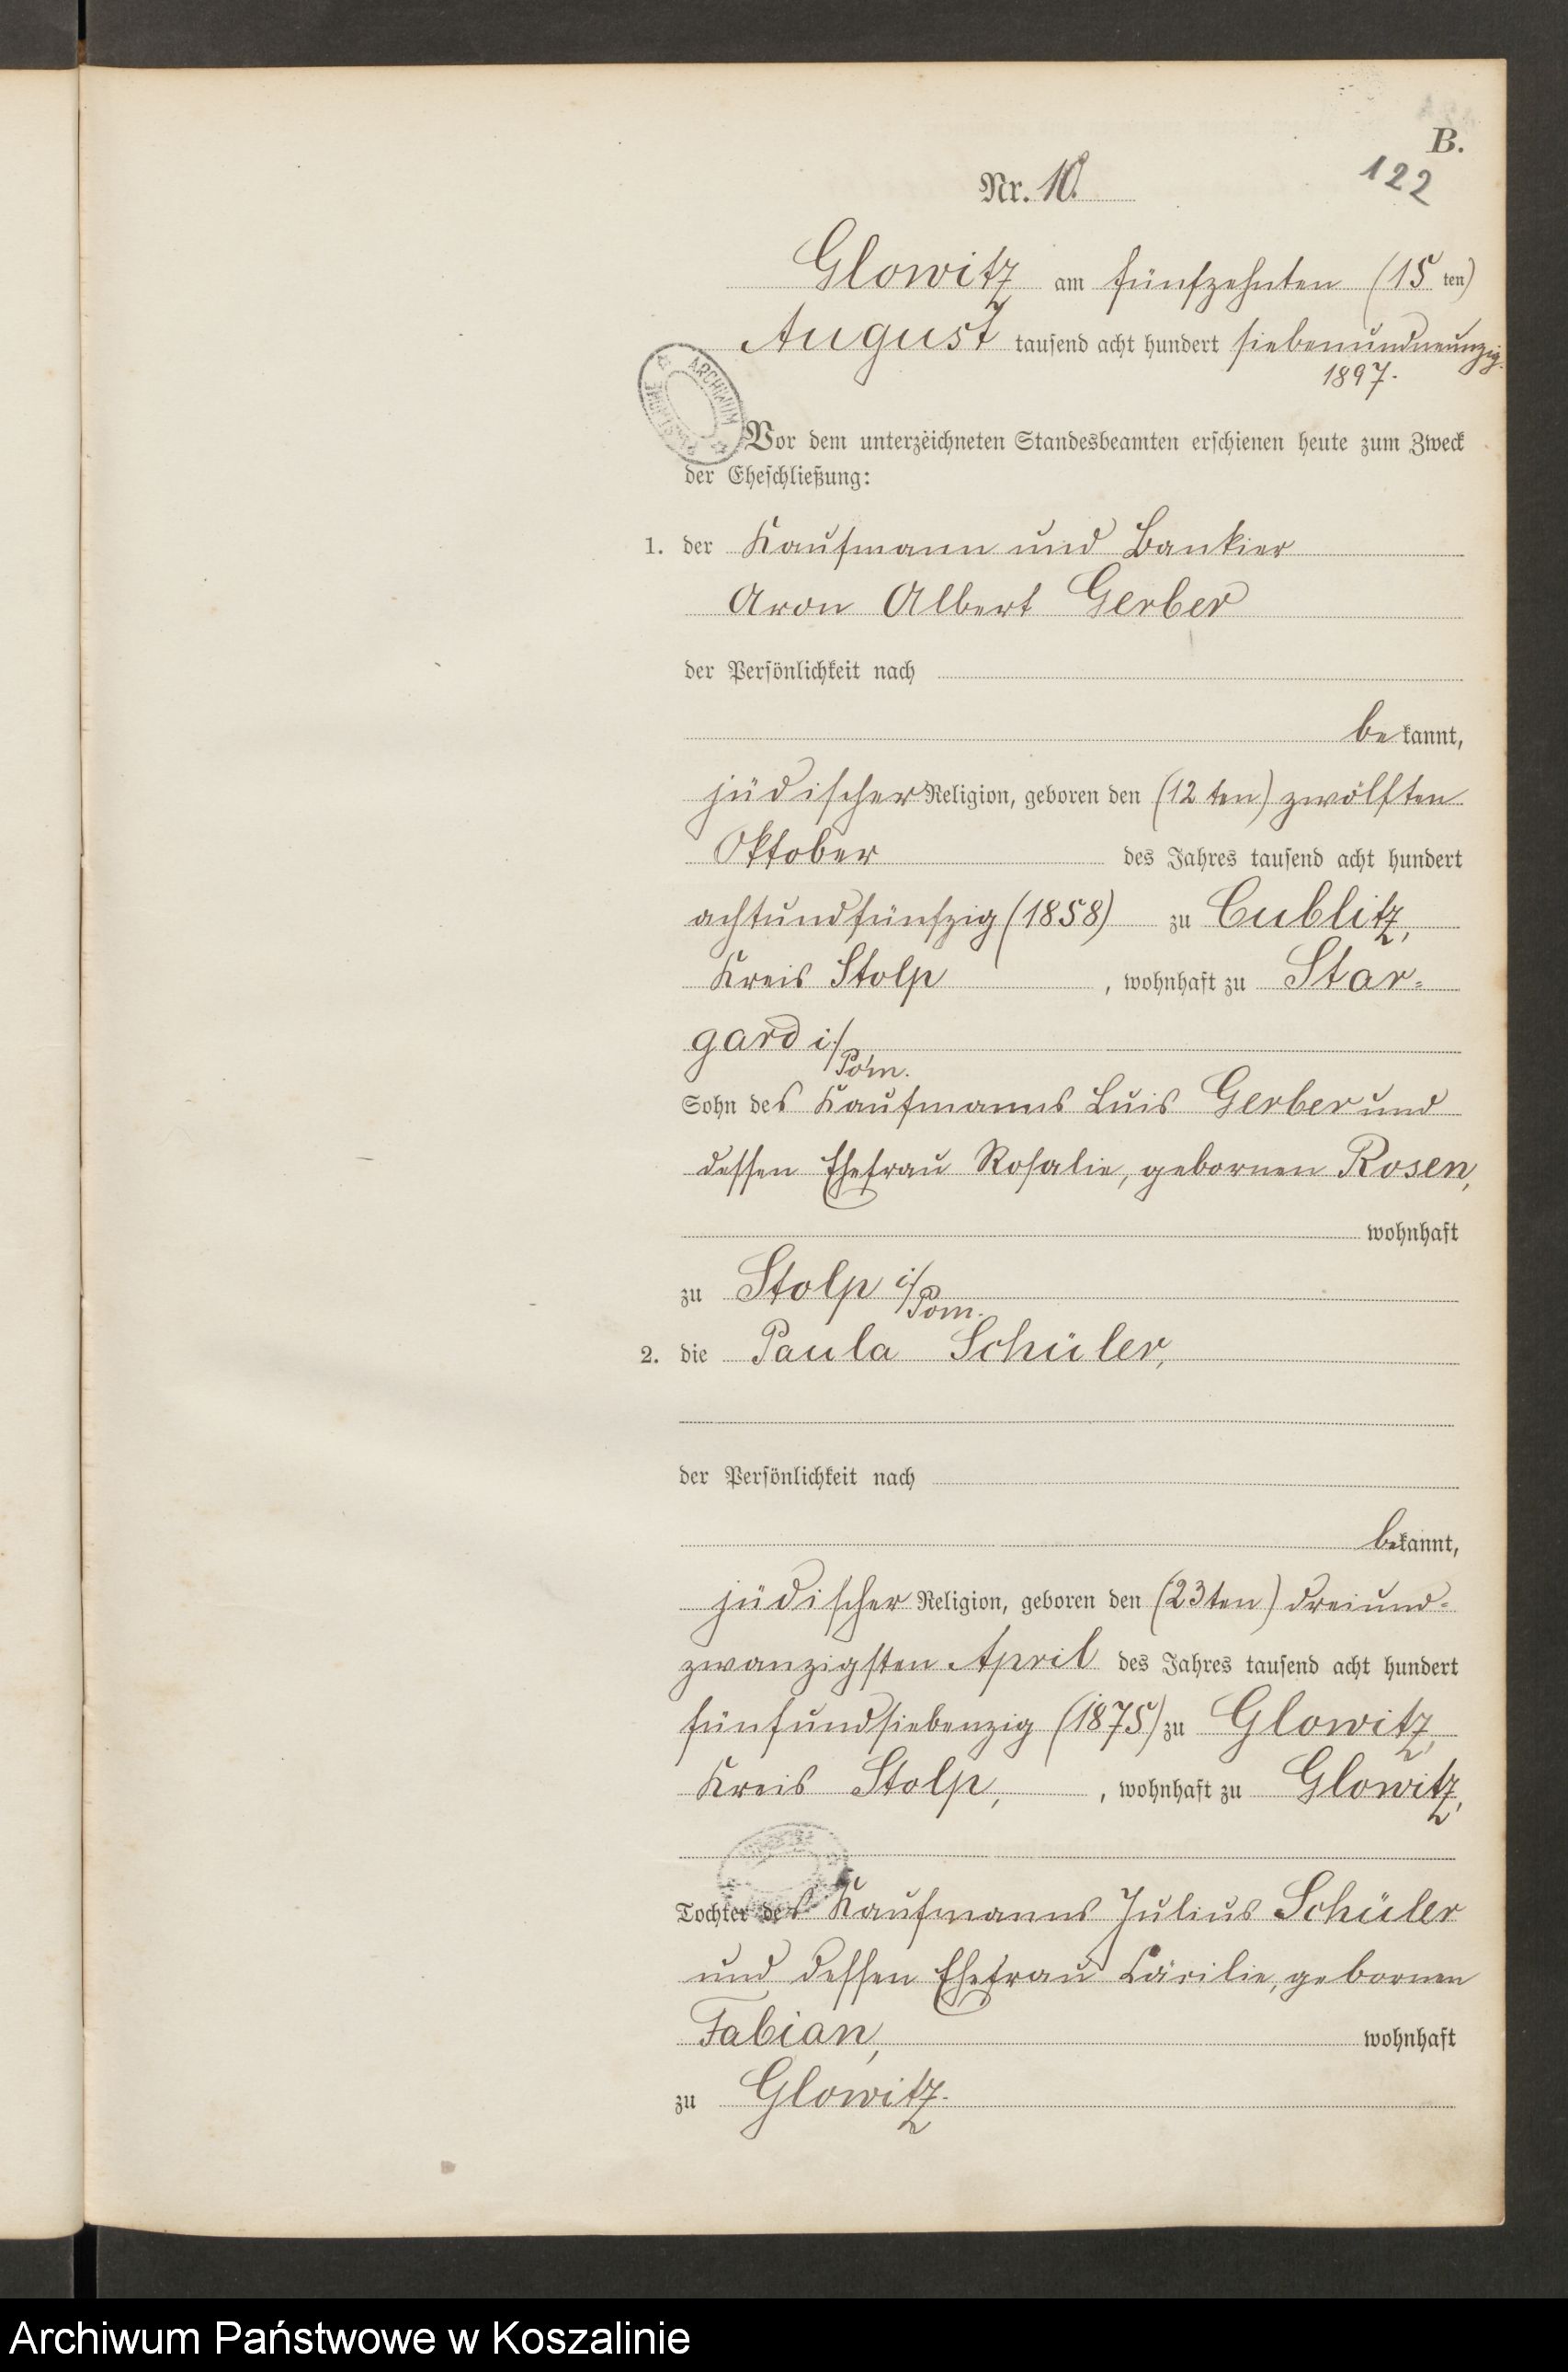 B.
122
Nr. 10.
Glowitz am fünfzehnten (15 ten)
August tausend acht hundert siebenundneunzig.
1897.
ARCHIWUM
Vor dem unterzeichneten Standesbeamten erschienen heute zum Zweck
der Eheschließung:
1. der Kaufmann und Bankier
Aron Albert Gerber
der Persönlichkeit nach
bekannt,
jüdischer Religion, geboren den (12 ten) zwölften
Oktober des Jahres tausend acht hundert
achtundfünfzig (1858) zu Cublitz,
Kreis Stolp, wohnhaft zu Star=
gard i/Pom.
Sohn des Kaufmanns Luis Gerber und
dessen Ehefrau Rosalie, gebornen Rosen,
wohnhaft
zu Stolp i/Pom.
2. die Paula Schüler,
der Persönlichkeit nach
bekannt,
jüdischer Religion, geboren den (23ten) dreiund=
zwanzigsten April des Jahres tausend acht hundert
fünfundsiebenzig (1875) zu Glowitz,
Kreis Stolp, , wohnhaft zu Glowitz,
Tochter des Kaufmanns Julius Schüler
und dessen Ehefrau Cäcilie, gebornen
Fabian, wohnhaft
zu Glowitz.
Archiwum Państwowe w Koszalinie